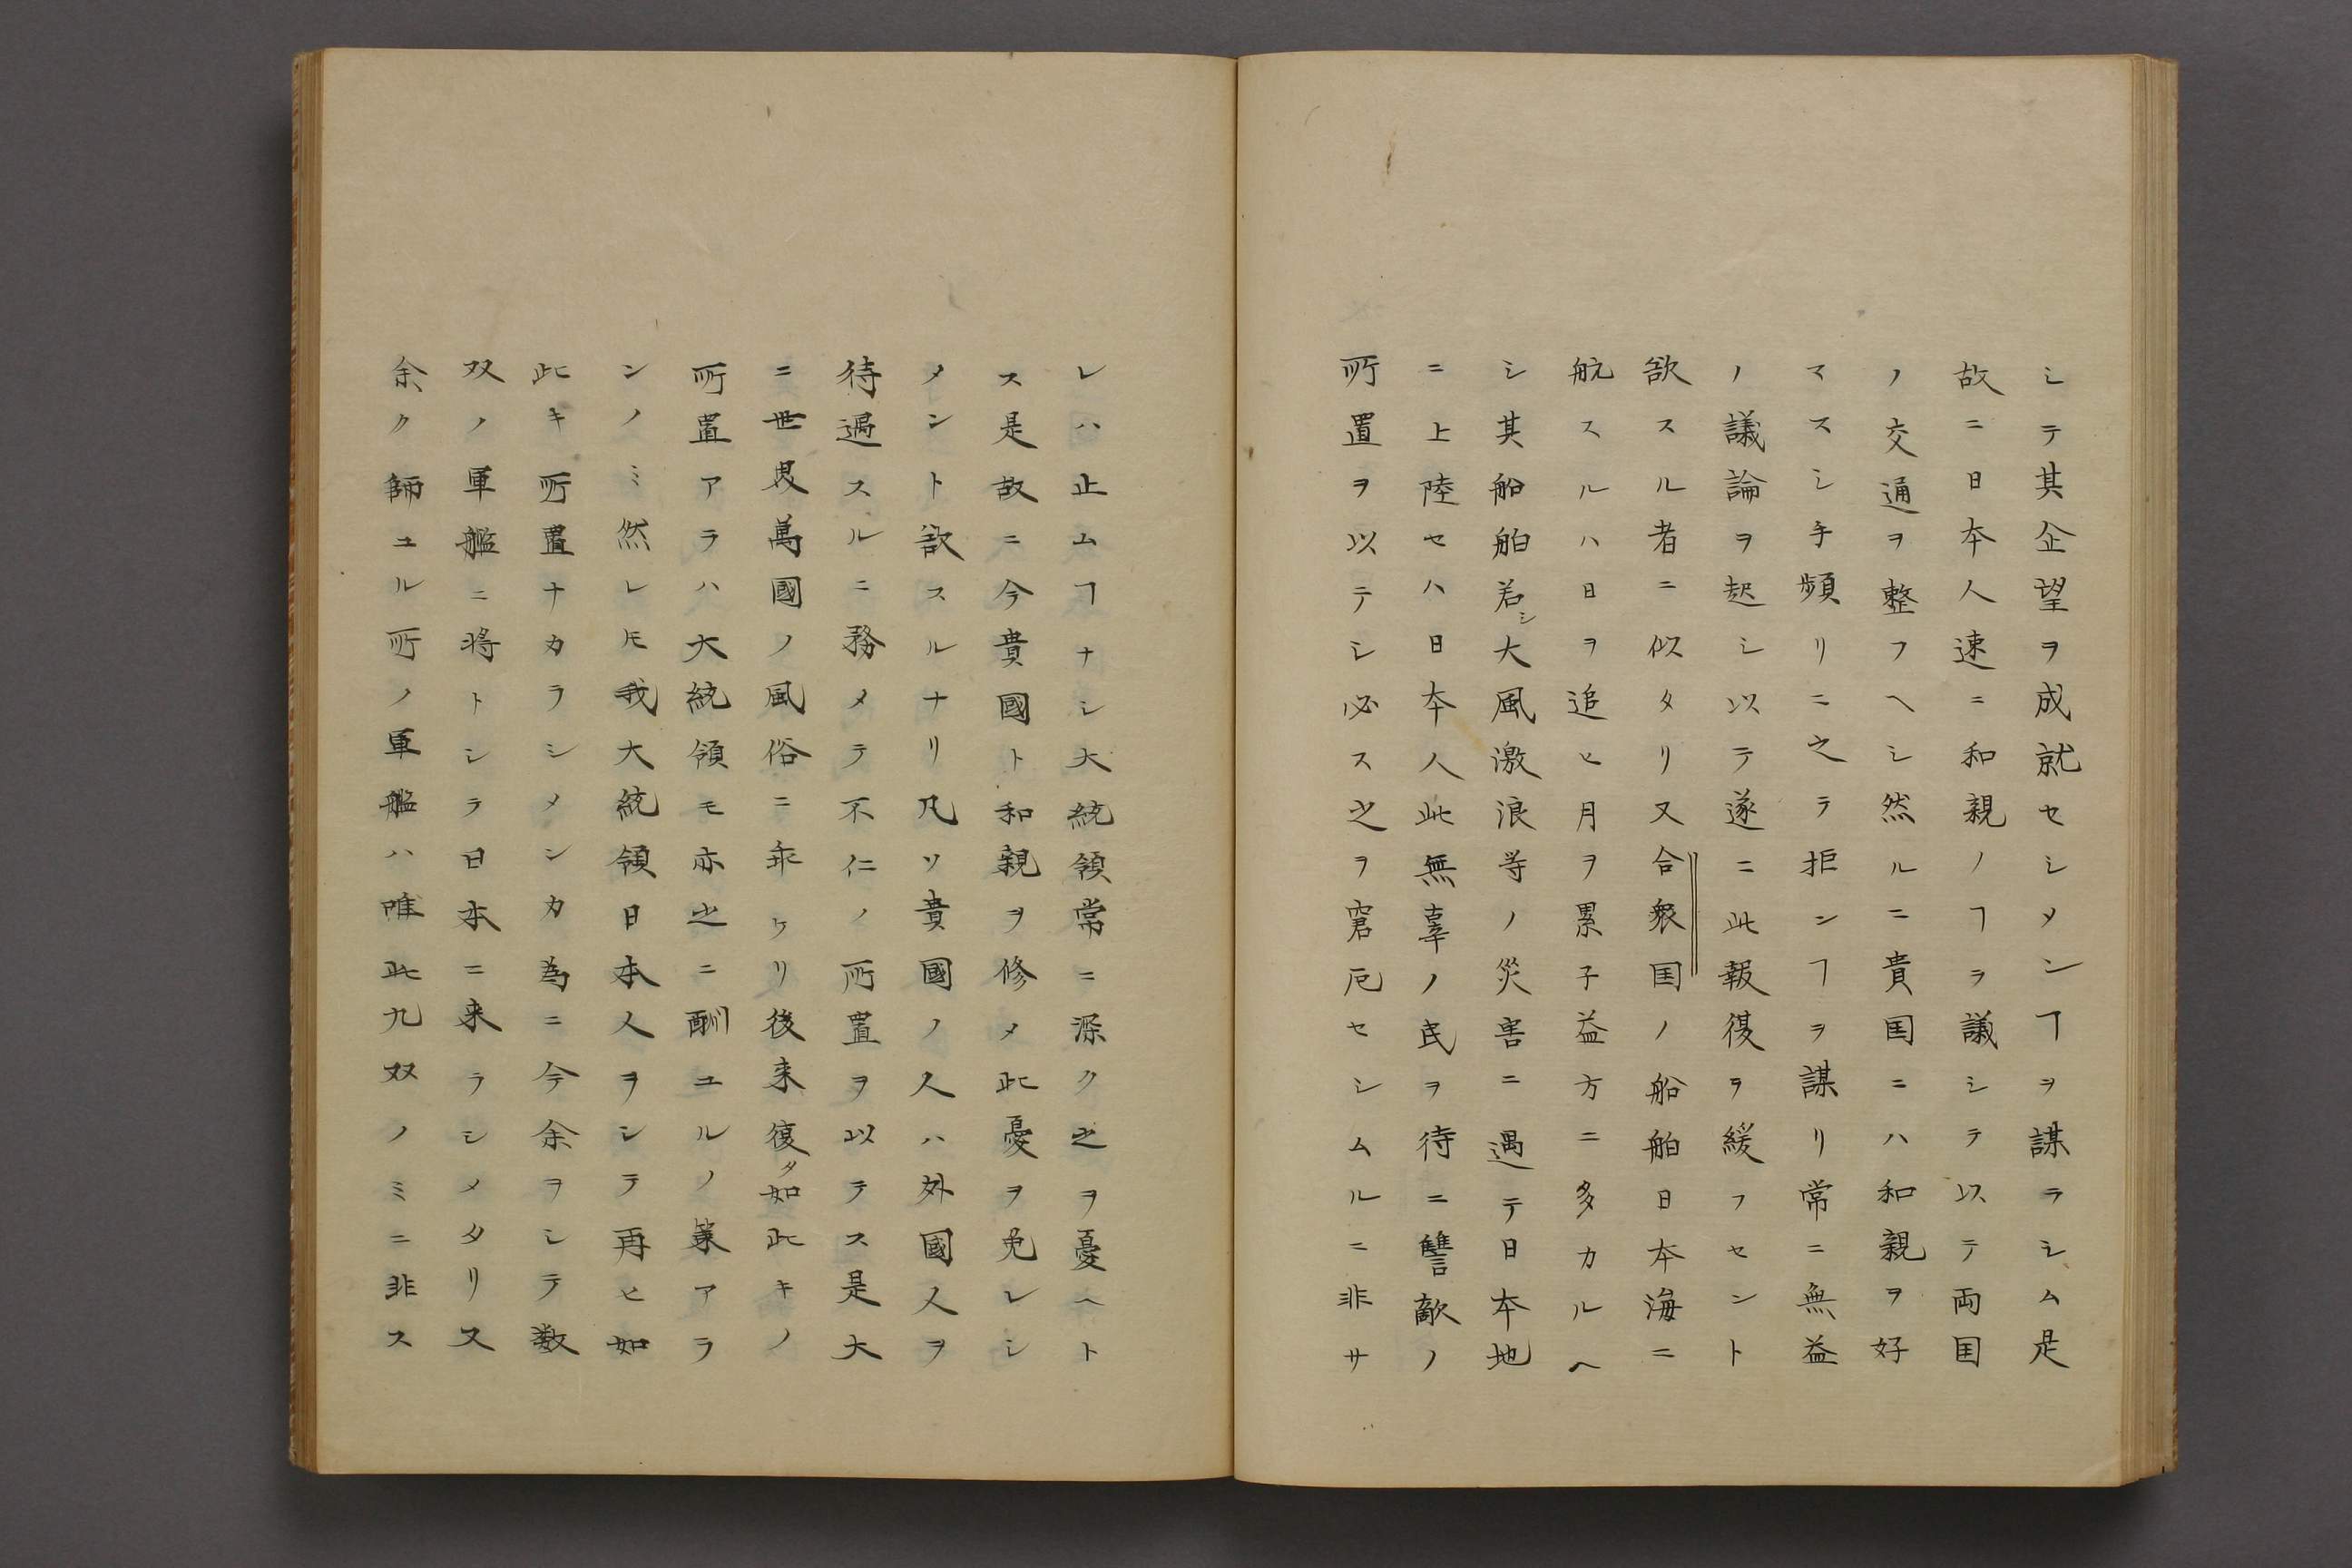 シテ其企望ヲ成就セシメンヿヲ謀ラシム是
故ニ日本人速ニ和親ノヿヲ議シテ以テ両国
ノ交通ヲ整フヘシ然ルニ貴国ニハ和親ヲ好
マスシ手頻リニ之テ拒ンヿヲ謀リ常ニ無益
ノ議論ヲ起シ以テ遂ニ此報復ヲ緩フセント
欲スル者ニ似タリ又合衆国ノ船舶日本海ニ
航スルハ日ヲ追ヒ月ヲ累子益方ニ多カルヘ
シ其船舶若シ大風激浪等ノ災害ニ遇テ日本地
ニ上陸セハ日本人此無辜ノ民ヲ待ニ讐敵ノ
所置ヲ以テシ必ス之ヲ窘厄セシムルニ非サ
レハ止ムヿナシ大統領常ニ深ク之ヲ憂ヘト
ス是故ニ今貴國ト和親ヲ修メ此憂ヲ免レシ
メント欲スルナリ凡ソ貴國ノ人ハ外國人ヲ
待遇スルニ務メテ不仁ノ所置ヲ以テス是大
ニ世畏萬國ノ風俗ニ乖ケリ後来復タ如此キノ
所置アラハ大統領モ亦之ニ酬ユルノ策アラ
ンノミ然レ𪜈我大統領日本人ヲシテ再ヒ如
此キ所置ナカラシメンカ為ニ今余ヲシテ数
双ノ軍艦ニ将トシラ日本ニ来ラシメタリ又
余ク師ユル所ノ軍艦ハ唯此九双ノミニ非ス